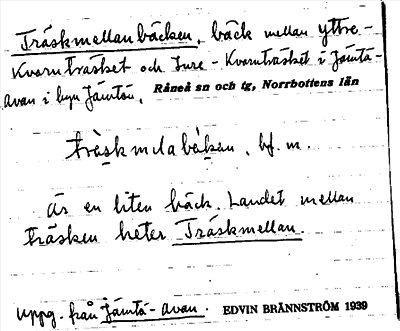 Träskmellanbäcken, bäck mellan Yttre-
Kvarnträsket och Inre-Kvarnträsket i Jämtö-
avan i byn Jämtön, Råneå sn och tg, Norrbottens län
bf. m.
är en liten bäck. Landet mellan
träsken heter Träskmellan.
Uppg. från Jämtö-avan. EDVIN BRÄNNSTRÖM 1939